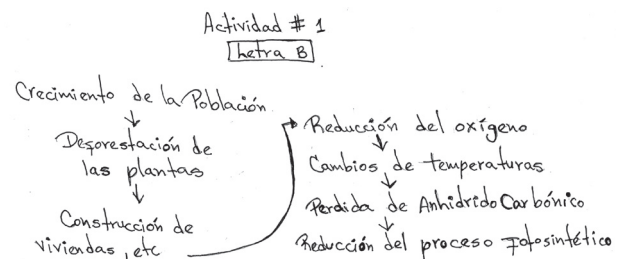 Actividad # 1
Letra B
Crecimiento de la Población
Desforestación de
las plantas
Construcción de
viviendas, etc
Reducción del oxígeno
Cambios de temperaturas
Perdida de Anhidrido Carbónico
Reducción del proceso Fotosintético